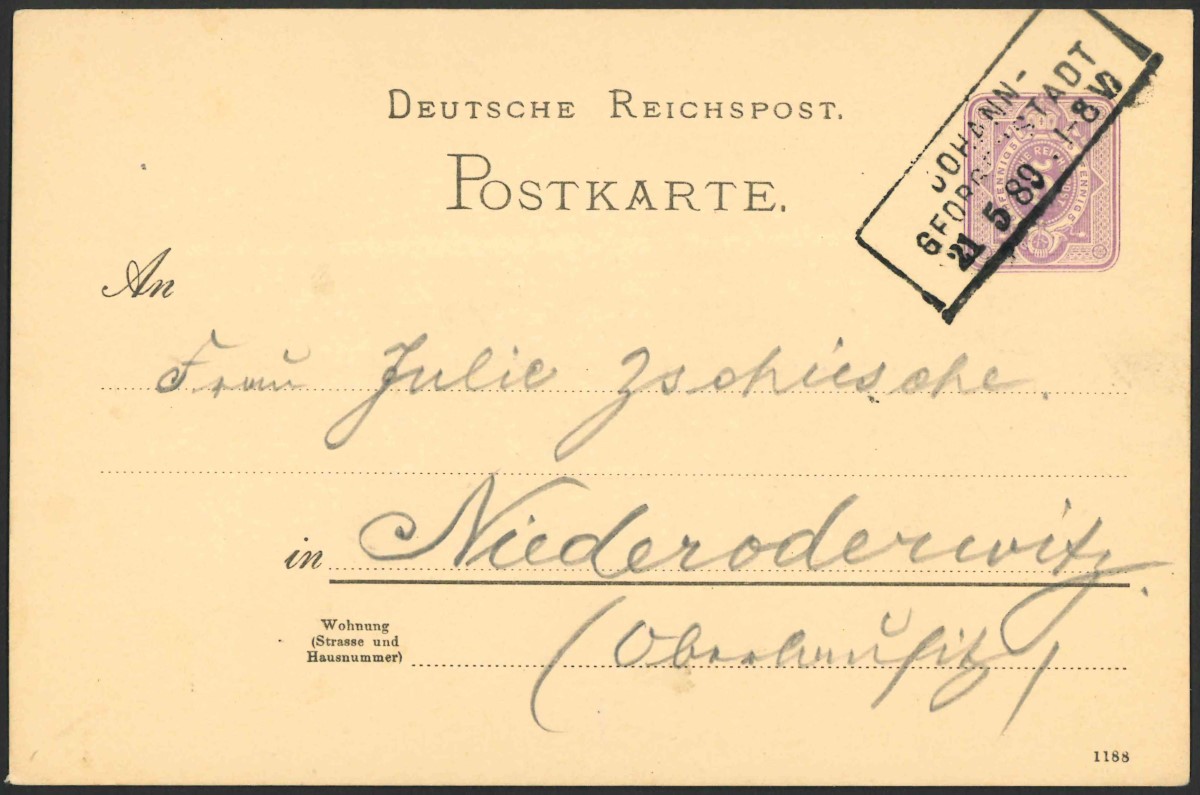 DEUTSCHE REICHSPOST.
POSTKARTE.
JOHANN-
GEORGENSTADT
21 5 89
1-8 V
An
Frau Julie Zschiesche.
in Niederoderwitz.
Wohnung
(Strasse und
Hausnummer)
(Oberlausitz)
1188